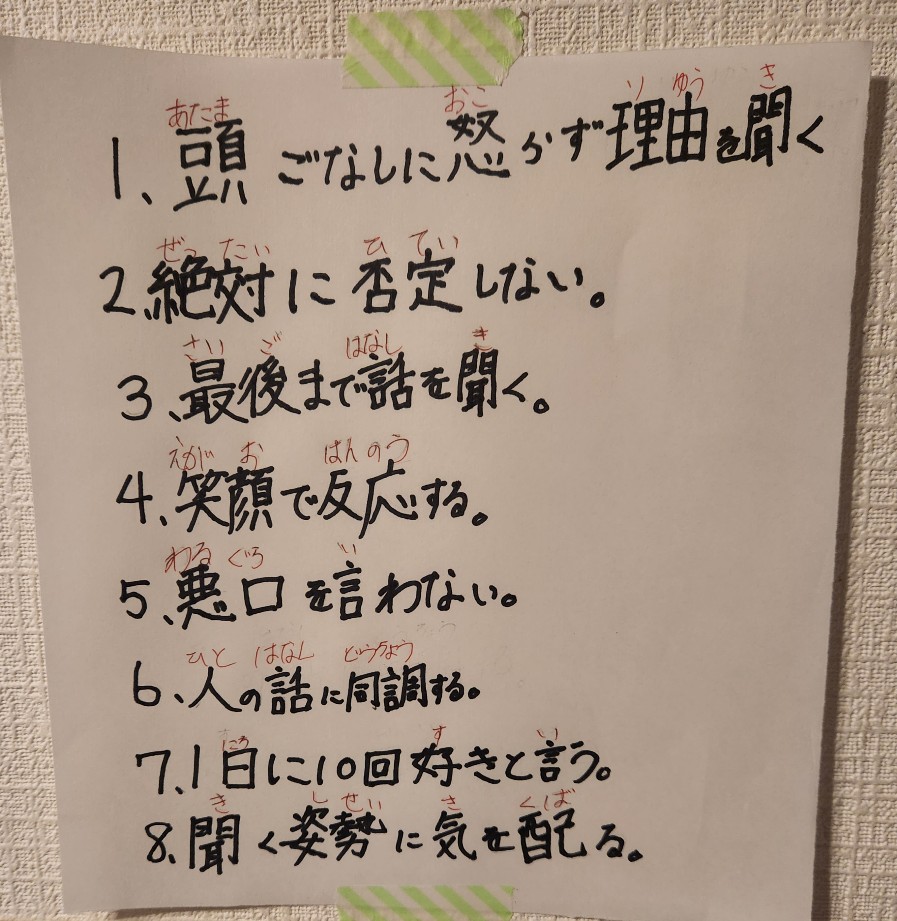 あたま おこ りゆう き
1、頭ごなしに怒らず理由を聞く
ぜったい ひてい
2、絶対に否定しない。
さいご はなし き
3、最後まで話を聞く。
えがお はんのう
4、笑顔で反応する。
わるぐち い
5、悪口を言わない。
ひと はなし どうちょう
6、人の話に同調する。
にち す い
7、1日に10回好きと言う。
き しせい き くば
8、聞く姿勢に気を配る。